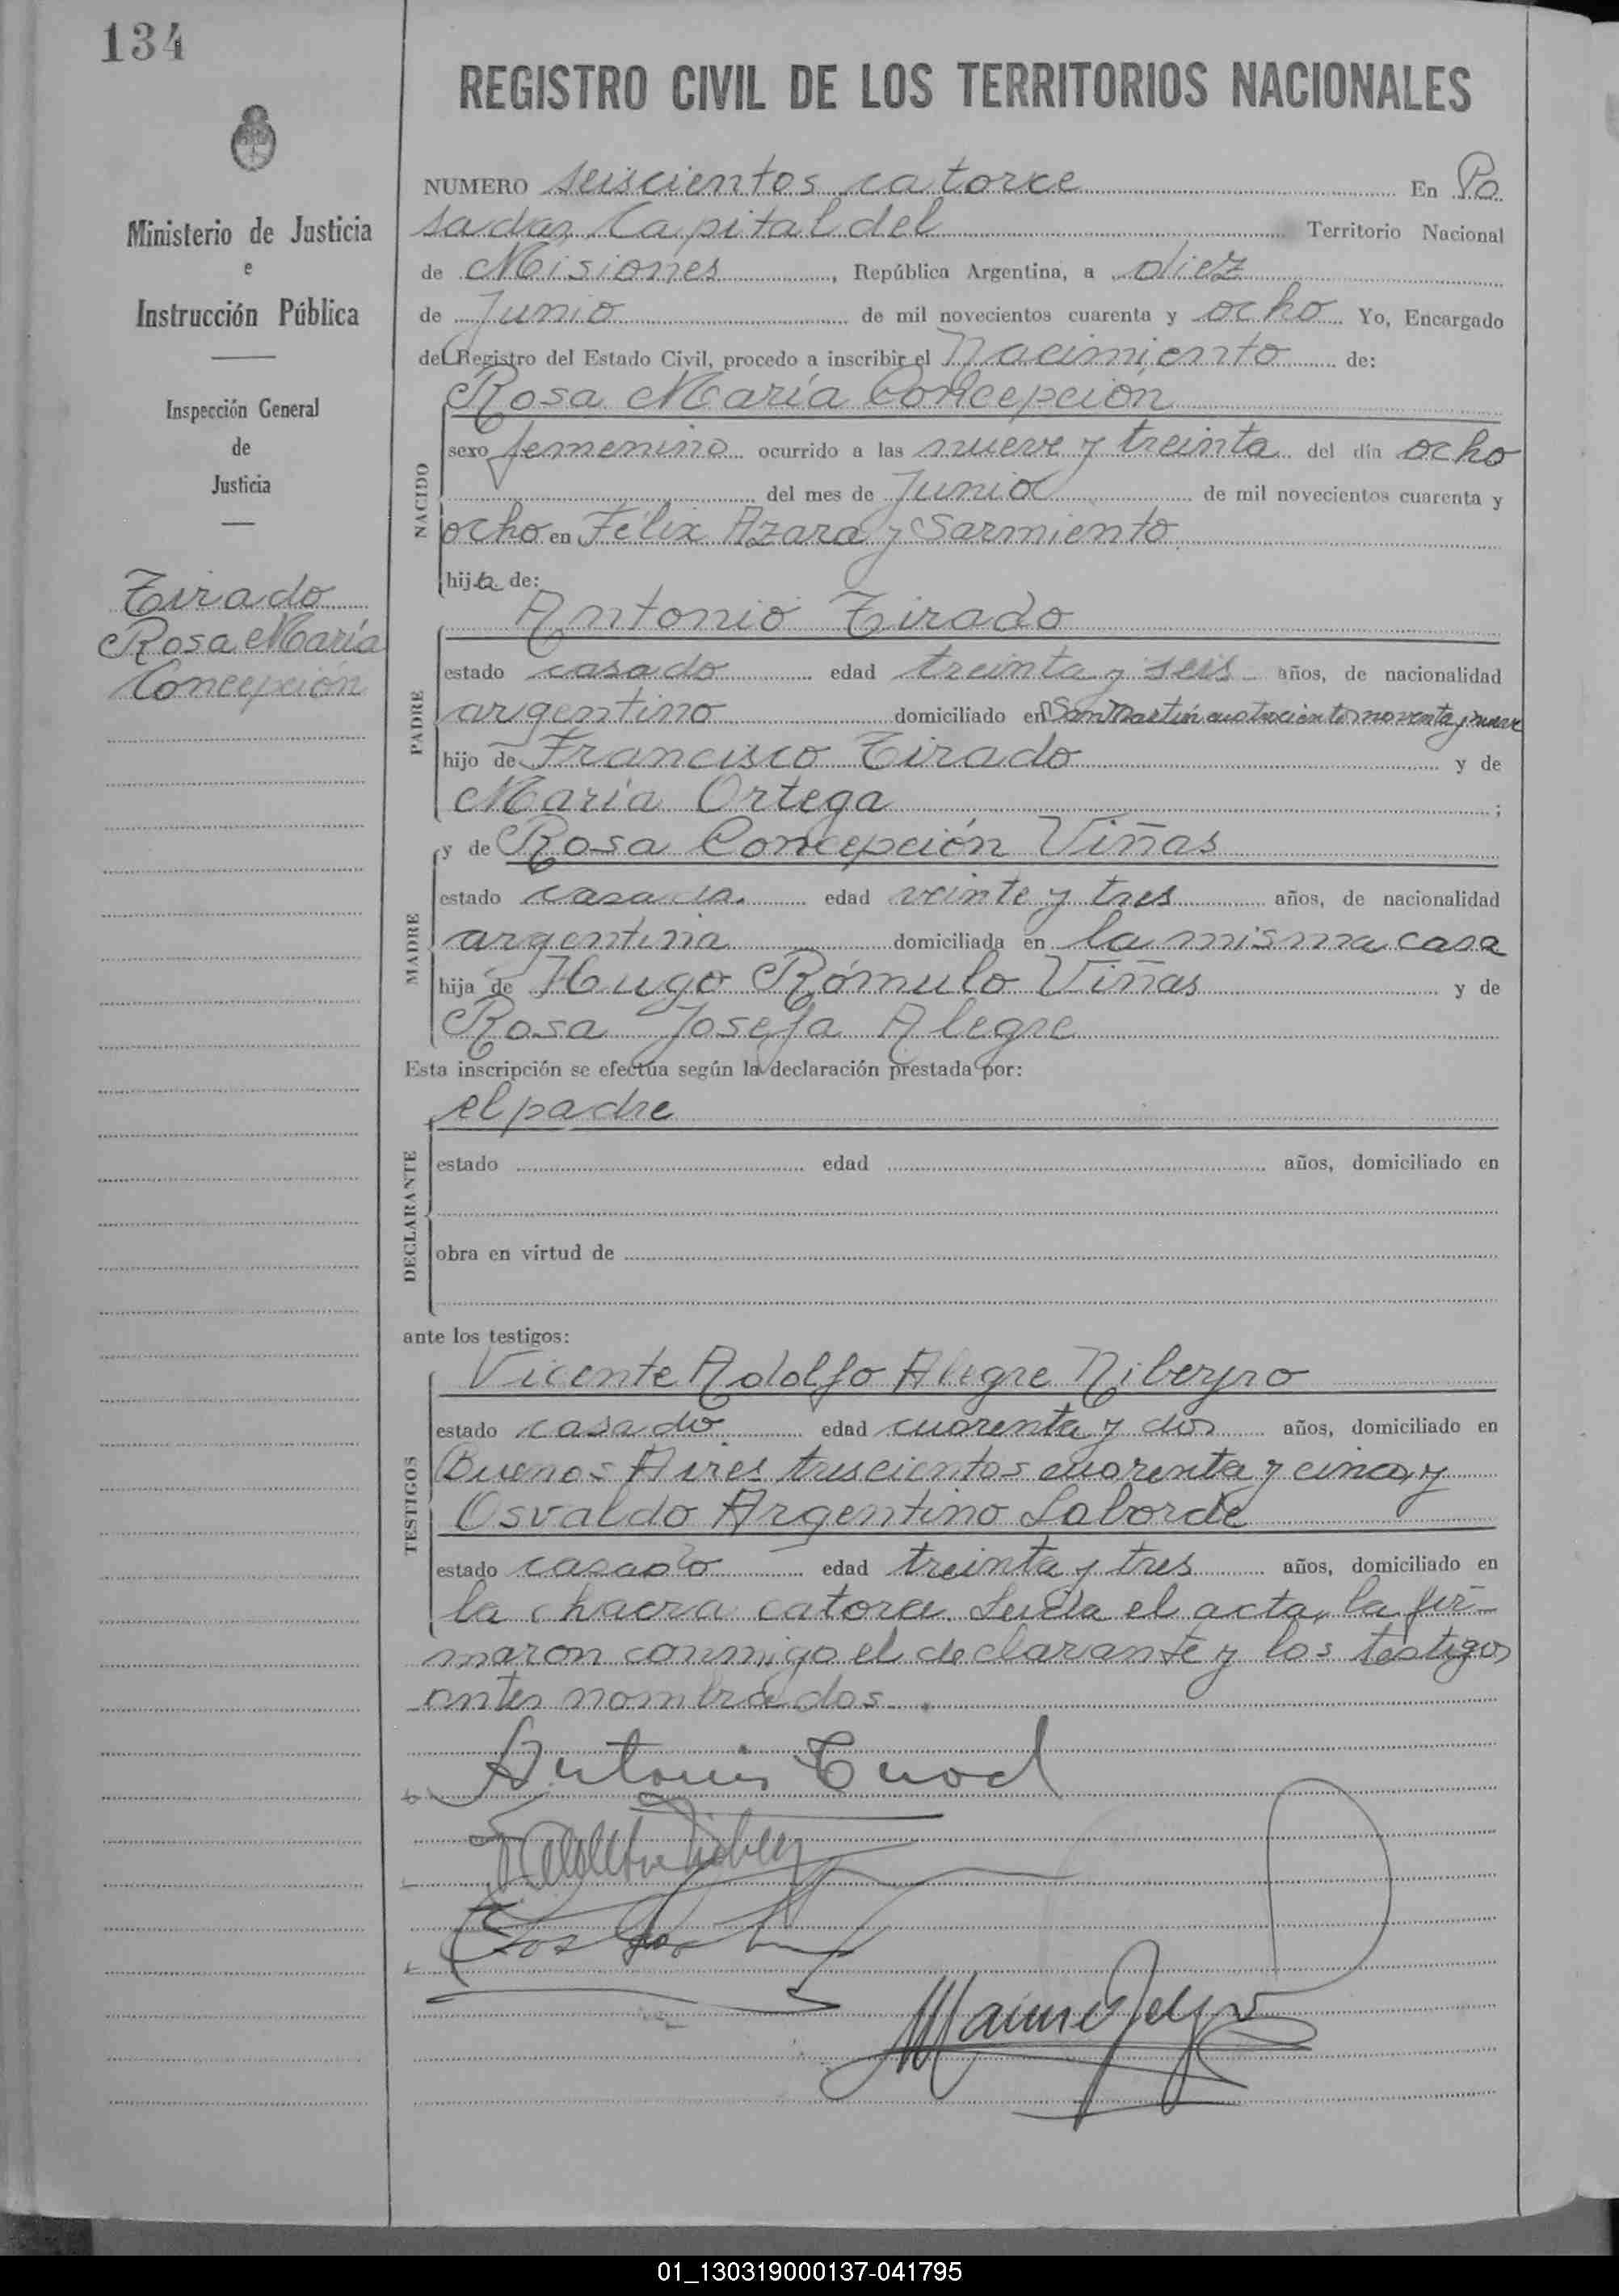 134
REGISTRO CIVIL DE LOS TERRITORIOS NACIONALES
Ministerio de Justicia
e
Instrucción Pública
Inspección General
de
Justicia
Tirado
Rosa María
Concepción
NUMERO seiscientos catorce En Po
sadas, Capital del Territorio Nacional
de Misiones, República Argentina, a diez
de Junio de mil novecientos cuarenta y ocho Yo, Encargado
del Registro del Estado Civil, procedo a inscribir el Nacimiento de:
Rosa María Concepción
NACIDO
sexo femenino ocurrido a las nueve y treinta del día ocho
del mes de Junio de mil novecientos cuarenta y
ocho en Félix Azara y Sarmiento
hija de:
Antonio Tirado
PADRE
estado casado edad treinta y seis años, de nacionalidad
argentino domiciliado en San Martín cuatrocientos noventa y nueve
hijo de Francisco Tirado y de
María Ortega;
y de Rosa Concepción Viñas
MADRE
estado casada. edad veinte y tres años, de nacionalidad
argentina domiciliada en la misma casa
hija de Hugo Rómulo Viñas y de
Rosa Josefa Alegre
Esta inscripción se efectúa según la declaración prestada por:
el padre
DECLARANTE
estado edad años, domiciliado en
obra en virtud de
ante los testigos:
Vicente Adolfo Alegre
TESTIGOS
estado casado edad cuarenta y dos años, domiciliado en
Buenos Aires trescientos cuarenta y cinco, y
Osvaldo Argentino Laborde
estado casado edad treinta y tres años, domiciliado en
la chacra catorce. Leída el acta, la fir-
maron conmigo el declarante y los testigos
antes nombrados.
Antonio Tirado
01_130319000137-041795